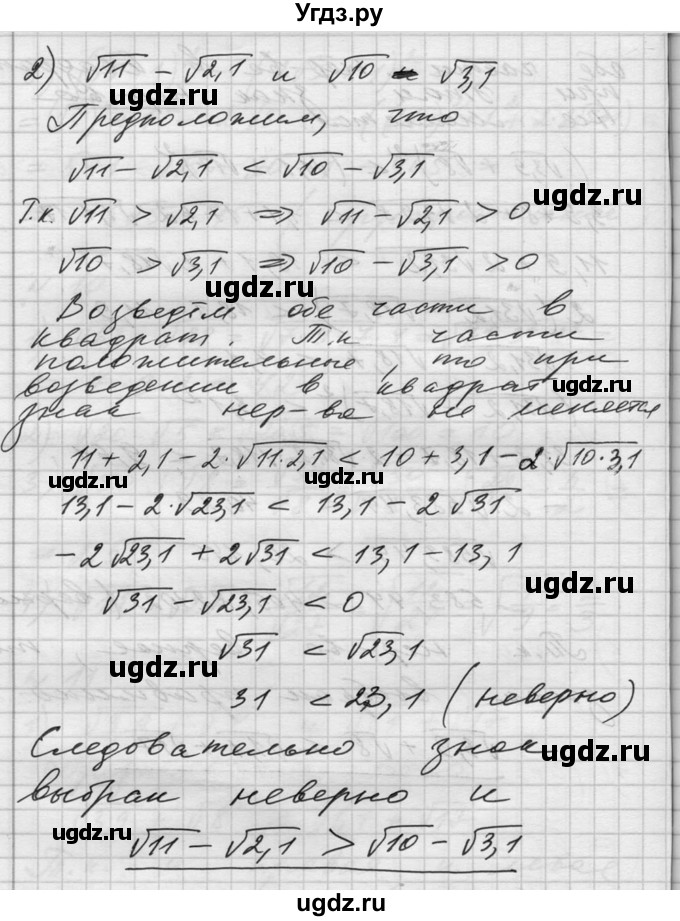 Угдз.ру
2) √11 − √2,1 и √10 − √3,1
ugdz.ru
Предположим, что
√11 − √2,1 < √10 − √3,1
ugdz.ru
Т.к. √11 > √2,1 ⇒ √11 − √2,1 > 0
ugdz.ru
√10 > √3,1 ⇒ √10 − √3,1 > 0
Возведём обе части в
квадрат. Т.к части
положительные, то при
возведении в квадрат
ugdz.ru
знак нер-ва не меняется
11 + 2,1 − 2·√11·2,1 < 10 + 3,1 − 2·√10·3,1
ugdz.ru ugdz.ru
13,1 − 2·√23,1 < 13,1 − 2√31
−2√23,1 + 2√31 < 13,1 − 13,1
ugdz.ru
√31 − √23,1 < 0
√31 < √23,1
ugdz.ru
31 < 23,1 (неверно)
Следовательно знак
ugdz.ru
выбран неверно и
√11 − √2,1 > √10 − √3,1
ugdz.ru ugdz.ru